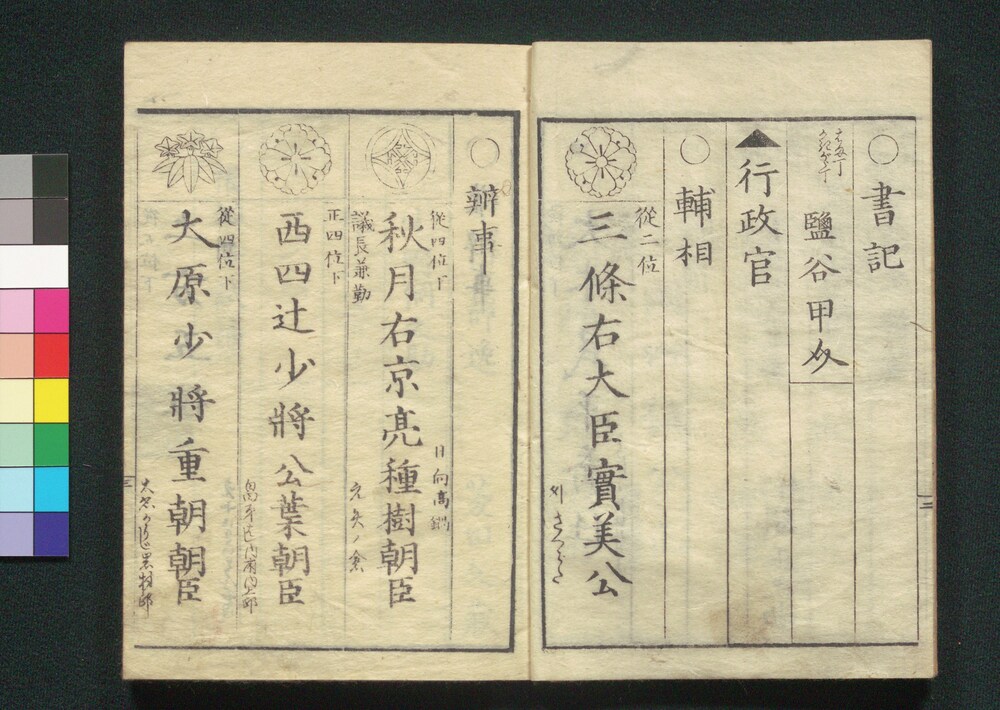 ○書記
鹽谷甲介
▲行政官
○輔相
從二位
三條右大臣實美公
○辨事
從四位下
秋月右京亮種樹朝臣
日向高鍋
議長兼勤
正四位下
西四辻少將公業朝臣
從四位下
大原少將重朝朝臣
二
三